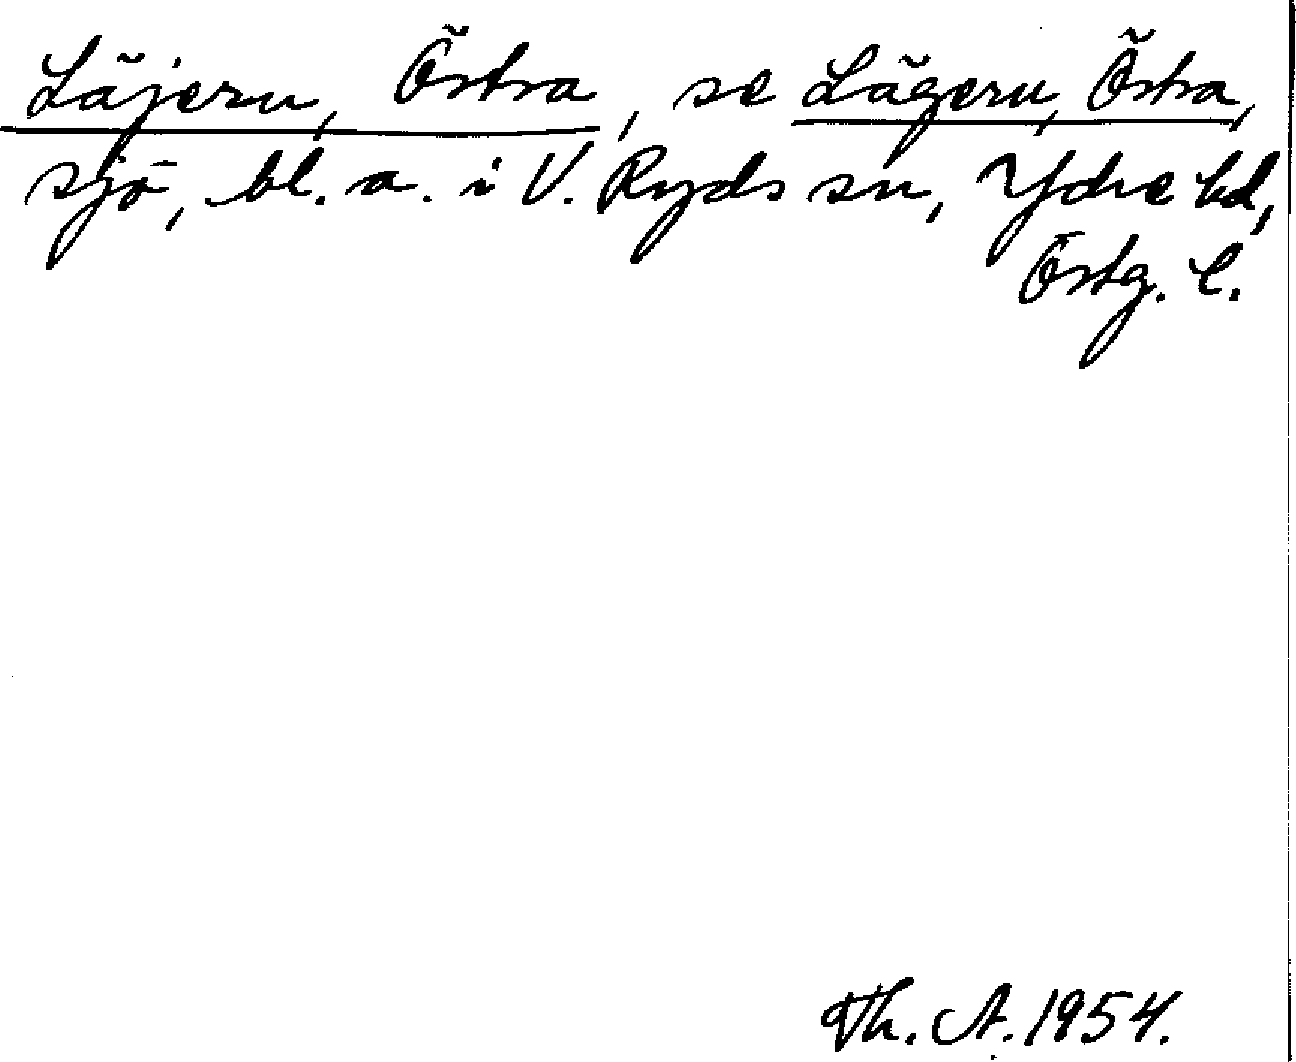 Läjern, Östra, se Lägern, Östra,
sjö, bl. a. i V. Ryds sn, Ydre hd,
Östg. l.
Th. A. 1954.